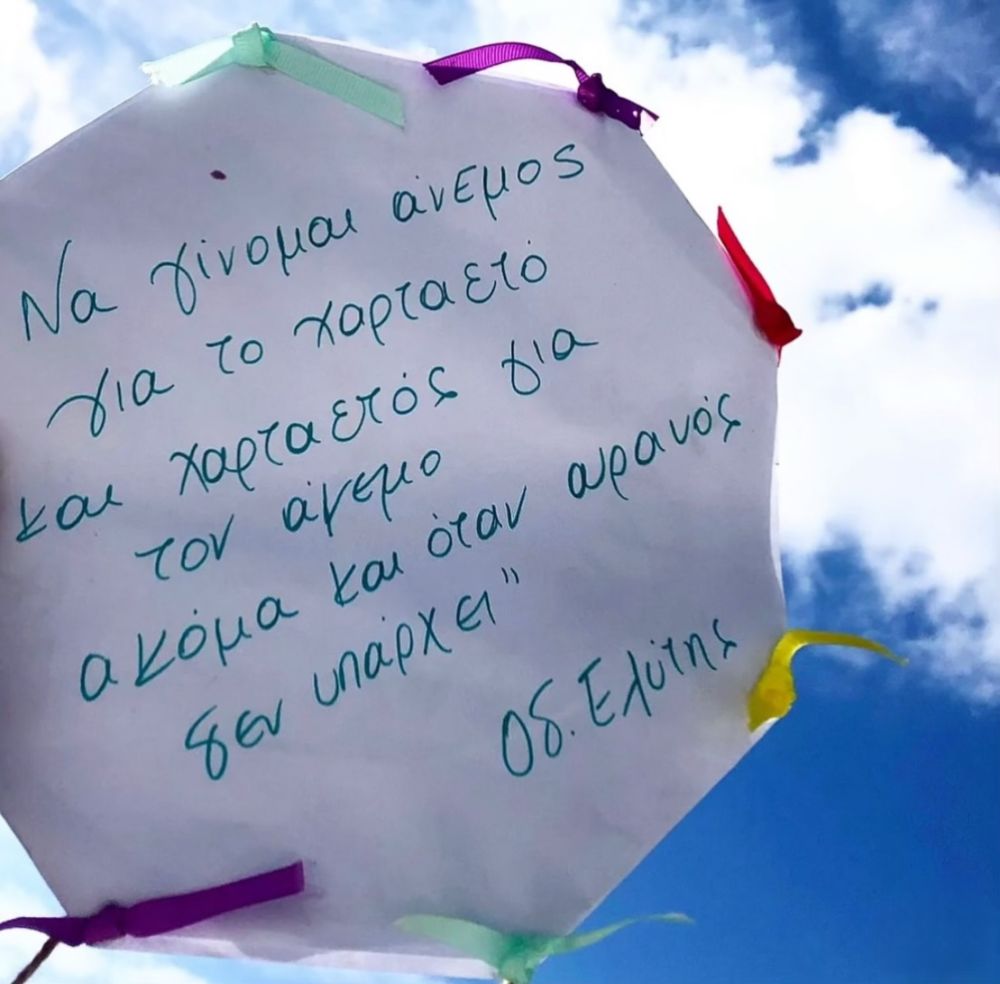 Να γίνομαι άνεμος
για το χαρταετό
και χαρταετός για
τον άνεμο
ακόμα και όταν ουρανός
δεν υπάρχει"
Οδ. Ελύτης